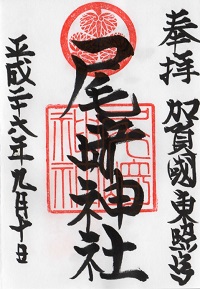 奉拝
加賀國東照宮
尾崎神社
平成二十六年九月十日